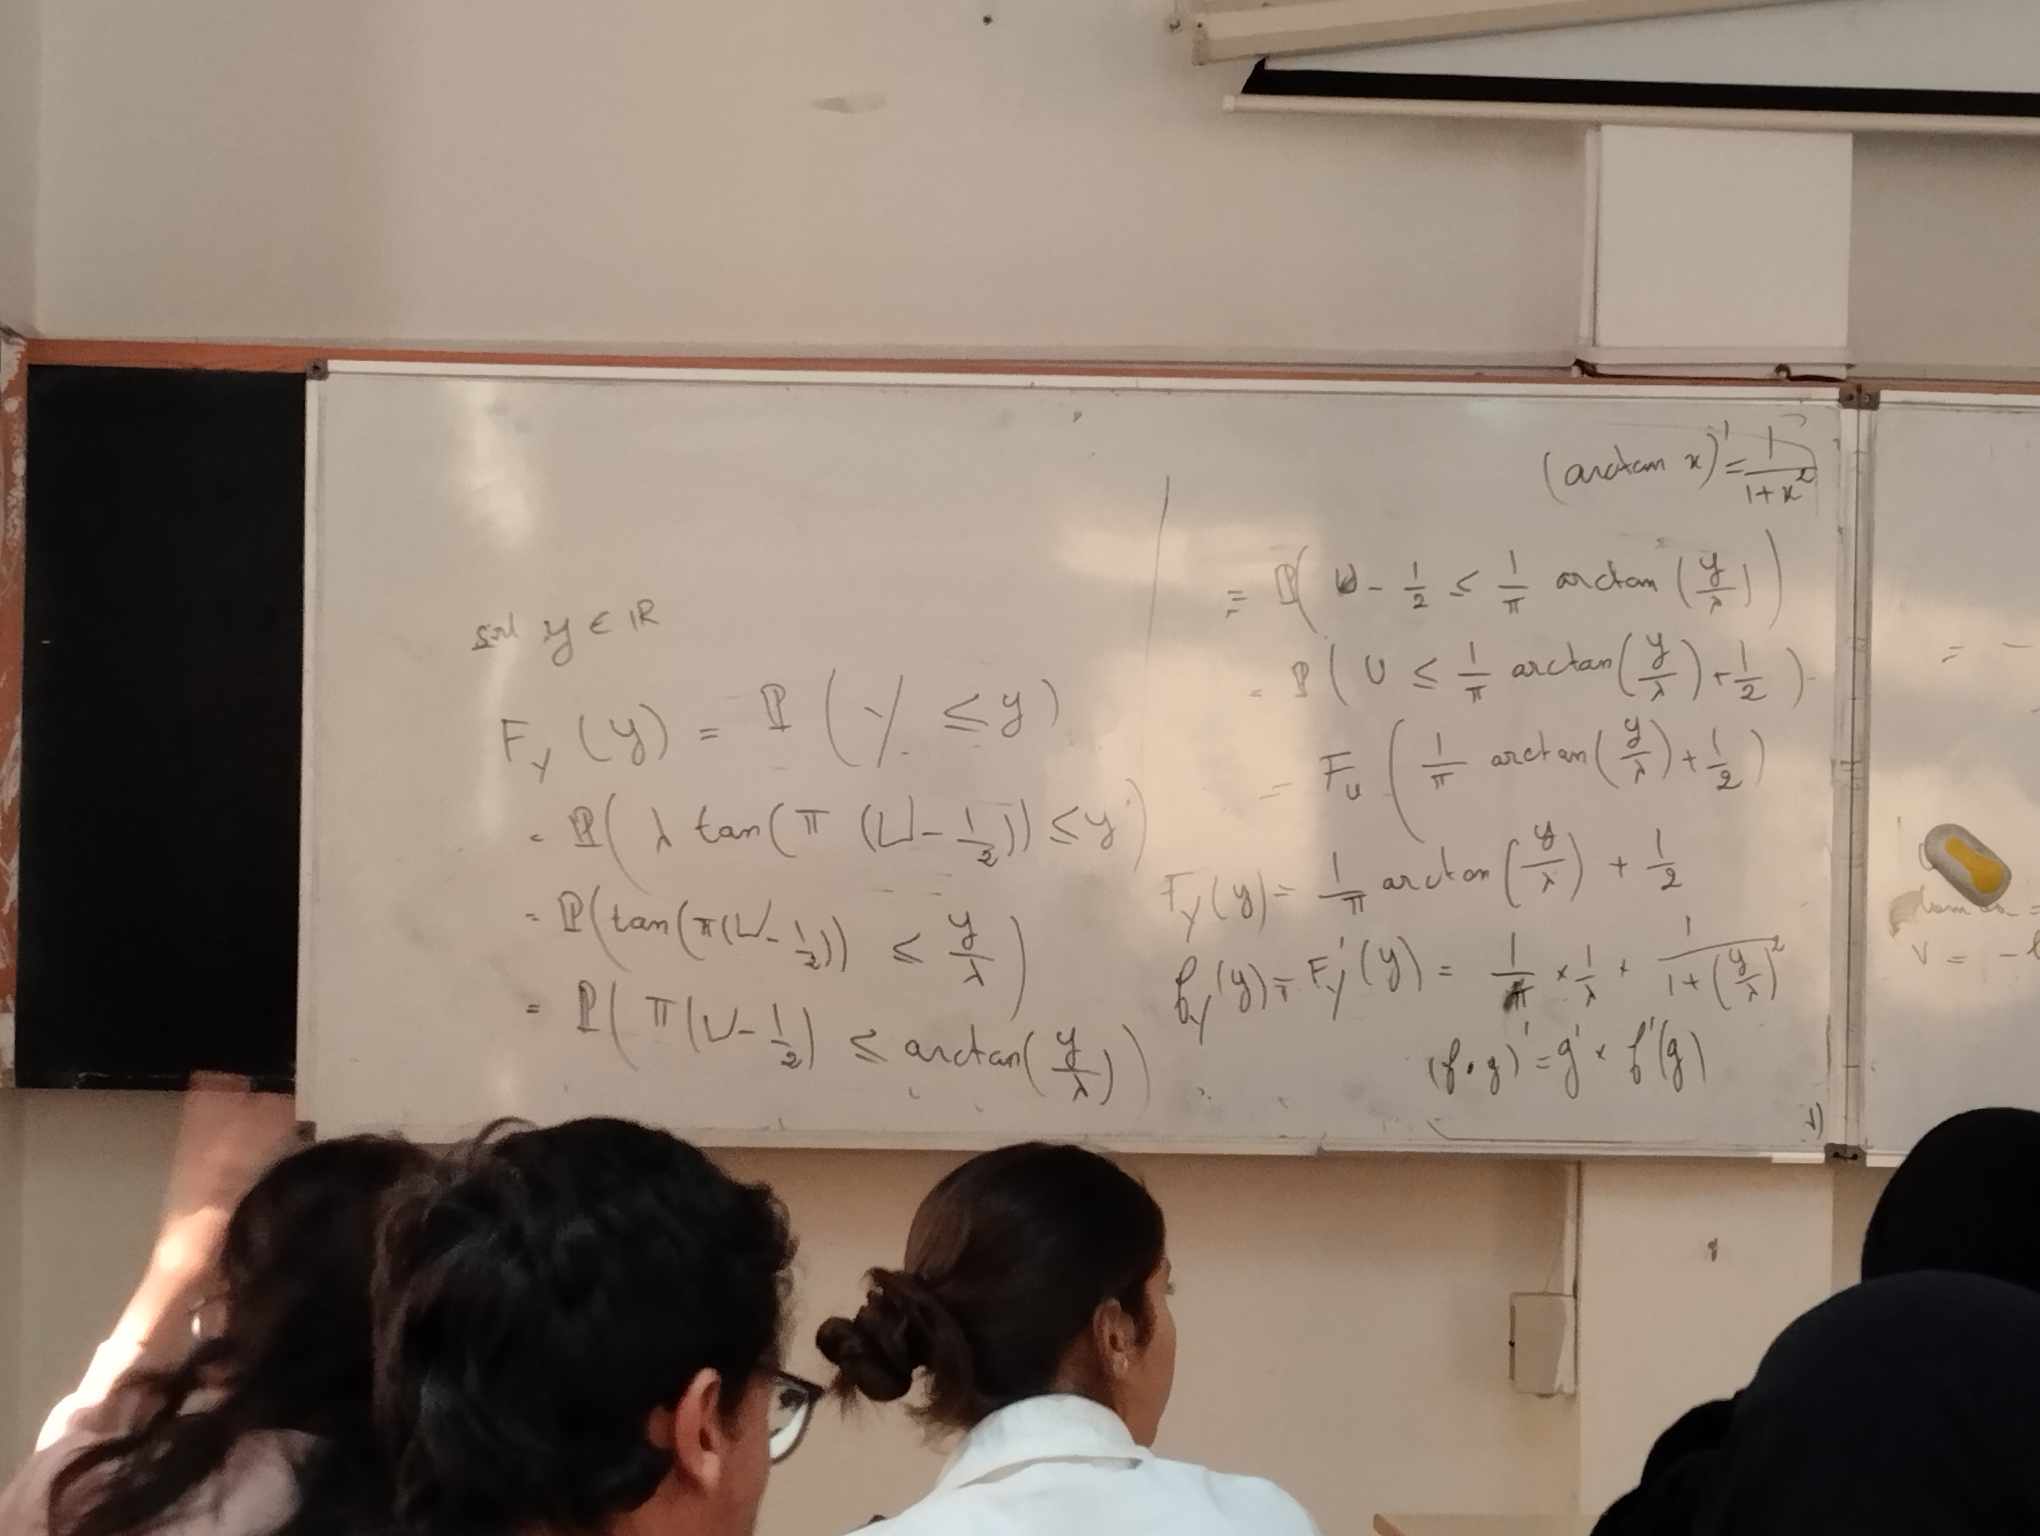 soit y ∈ ℝ
F_Y (y) = ℙ (Y ≤ y)
= ℙ( λ tan(π (U - 1/2)) ≤ y )
= ℙ(tan(π(U - 1/2)) ≤ y/λ)
= ℙ( π(U - 1/2) ≤ arctan(y/λ))
(arctan x)' = 1/(1+x²)
= ℙ( U - 1/2 ≤ 1/π arctan (y/λ))
= ℙ( U ≤ 1/π arctan(y/λ) + 1/2 )
= F_U ( 1/π arctan(y/λ) + 1/2 )
F_Y(y) = 1/π arctan (y/λ) + 1/2
f_Y(y) = F_Y'(y) = 1/π × 1/λ × 1/(1+(y/λ)²)
(f∘g)' = g' × f'(g)
= -
V = -